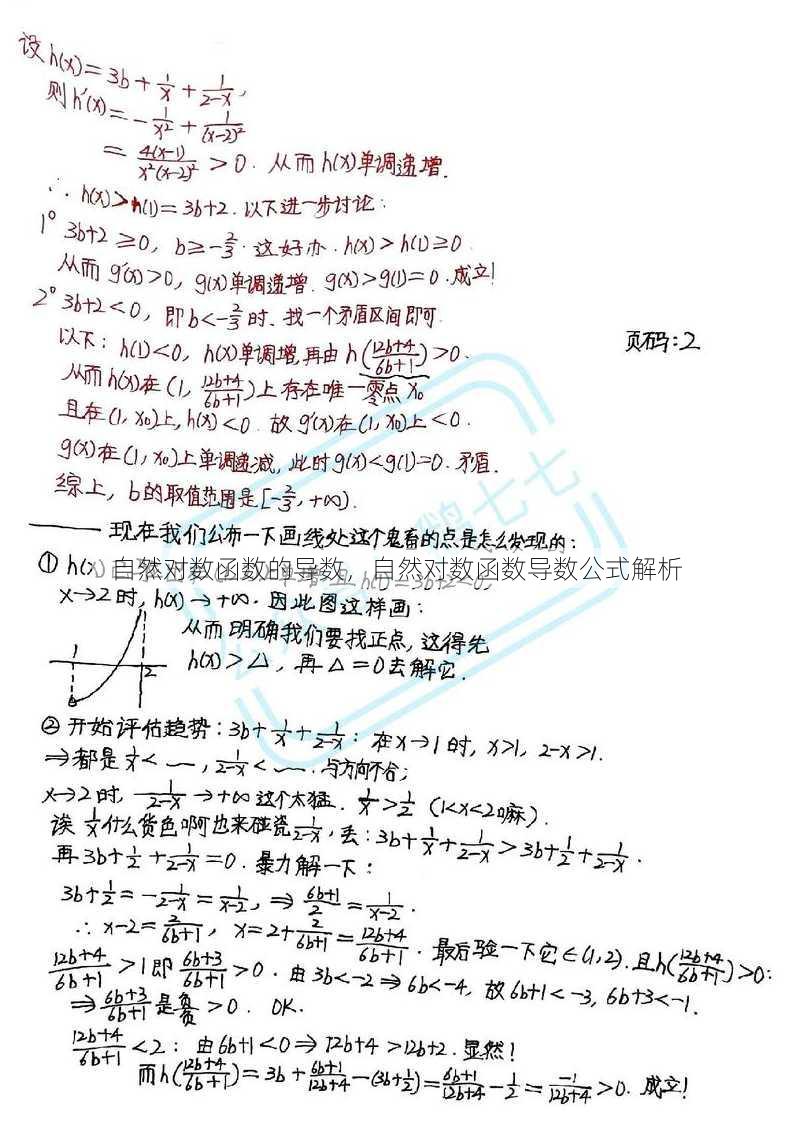 设h(x)=3b+1/x+1/(2-x),
则h'(x)=-1/x²+1/(x-2)²
=4(x-1)/(x²(x-2)²)>0. 从而h(x)单调递增.
∴h(x)>h(1)=3b+2. 以下进一步讨论:
1° 3b+2≥0, b≥-2/3. 这好办. h(x)>h(1)≥0.
从而g'(x)>0, g(x)单调递增. g(x)>g(1)=0. 成立!
2° 3b+2<0, 即b<-2/3时. 找一个矛盾区间即可.
页码:2
以下: h(1)<0, h(x)单调增,再由h((12b+4)/(6b+1))>0.
从而h(x)在(1, (12b+4)/(6b+1))上存在唯一零点x₀
且在(1, x₀)上, h(x)<0. 故g'(x)在(1, x₀)上<0.
g(x)在(1, x₀)上单调递减, 此时g(x)<g(1)=0. 矛盾.
综上, b的取值范围是[-2/3, +∞).
——现在我们公布一下画线处这个鬼畜的点是怎么发现的:
自然对数函数的导数，自然对数函数导数公式解析
① h(x)
x→2时, h(x)→+∞. 因此图这样画:
从而明确我们要找正点, 这得先
1
2
h(x)>△, 再△=0去解它.
② 开始评估趋势: 3b+1/x+1/(2-x): 在x→1时, x>1, 2-x>1.
⇒都是1/x< ~, 1/(2-x)< ~. 与方向不合;
x→2时, 1/(2-x)→+∞这个太猛. 1/x>1/2 (1<x<2嘛).
诶1/x什么货色啊也来碰瓷1/(2-x), 丢: 3b+1/x+1/(2-x)>3b+1/2+1/(2-x).
再3b+1/2+1/(2-x)=0. 暴力解一下:
3b+1/2=-1/(2-x)=1/(x-2), ⇒(6b+1)/2=1/(x-2).
∴x-2=2/(6b+1), x=2+2/(6b+1)=(12b+4)/(6b+1). 最后验一下它∈(1,2). 且h((12b+4)/(6b+1))>0:
(12b+4)/(6b+1)>1即(6b+3)/(6b+1)>0. 由3b<-2⇒6b<-4, 故6b+1<-3, 6b+3<-1.
⇒(6b+3)/(6b+1)是负/负>0. OK.
(12b+4)/(6b+1)<2: 由6b+1<0⇒12b+4>12b+2. 显然!
而h((12b+4)/(6b+1))=3b+(6b+1)/(12b+4)-(3b+1/2)=(6b+1)/(12b+4)-1/2=-1/(12b+4)>0. 成立!